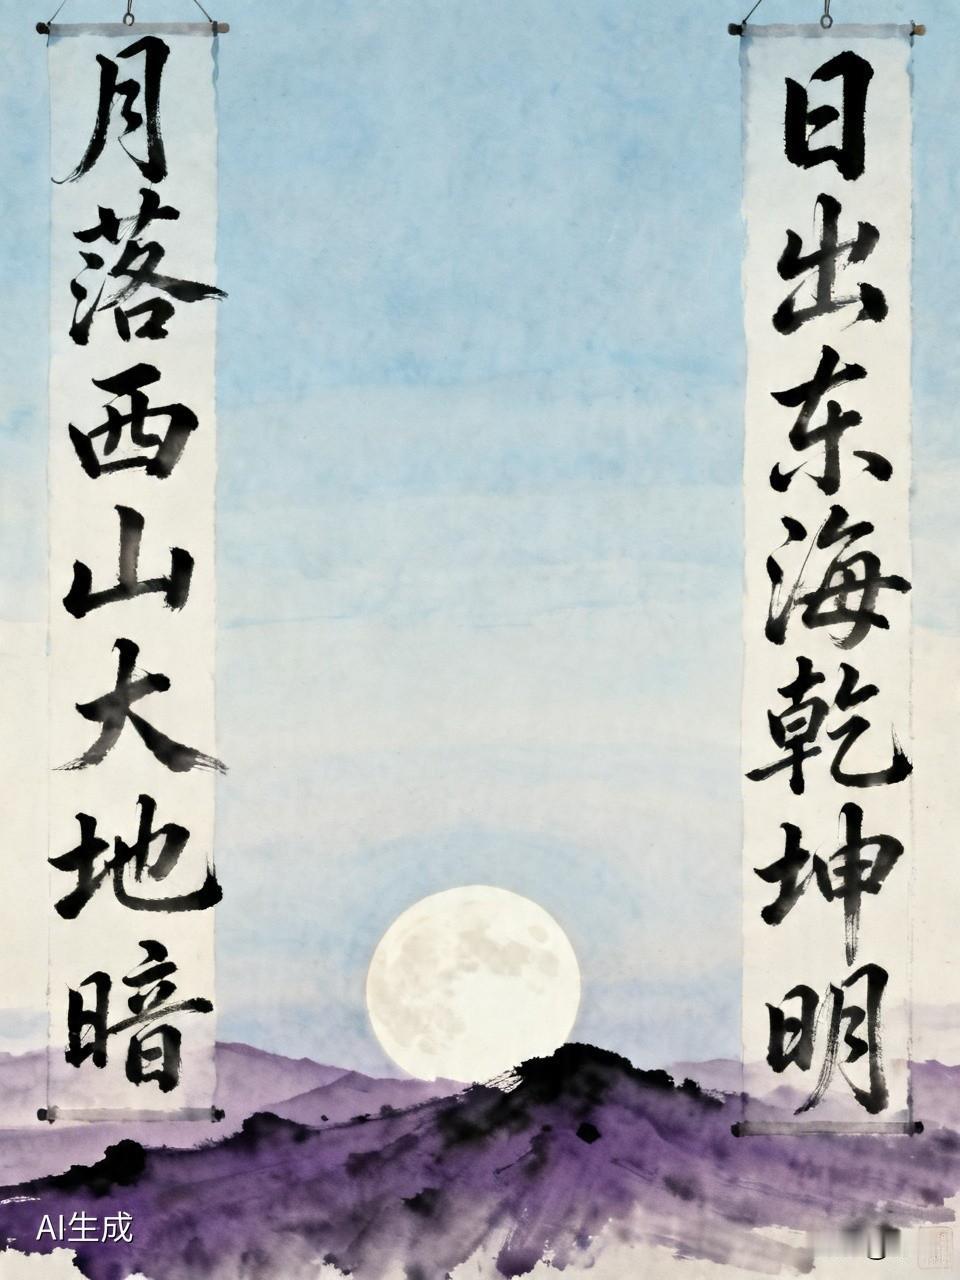 日出东海乾坤明
月落西山大地暗
AI生成